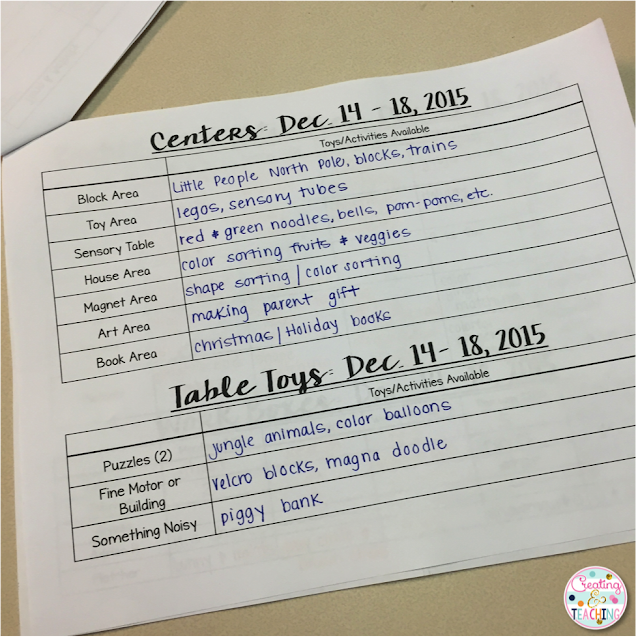 Centers: Dec. 14 - 18, 2015
Toys/Activities Available
Block Area Little People North Pole, blocks, trains
Toy Area legos, sensory tubes
Sensory Table red & green noodles, bells, pom-poms, etc.
House Area color sorting fruits & veggies
Magnet Area shape sorting / color sorting
Art Area making parent gift
Book Area christmas / Holiday books
Table Toys: Dec. 14 - 18, 2015
Toys/Activities Available
Puzzles (2) jungle animals, color balloons
Fine Motor or
Building velcro blocks, magna doodle
Something Noisy piggy bank
Creating
&
TEACHING